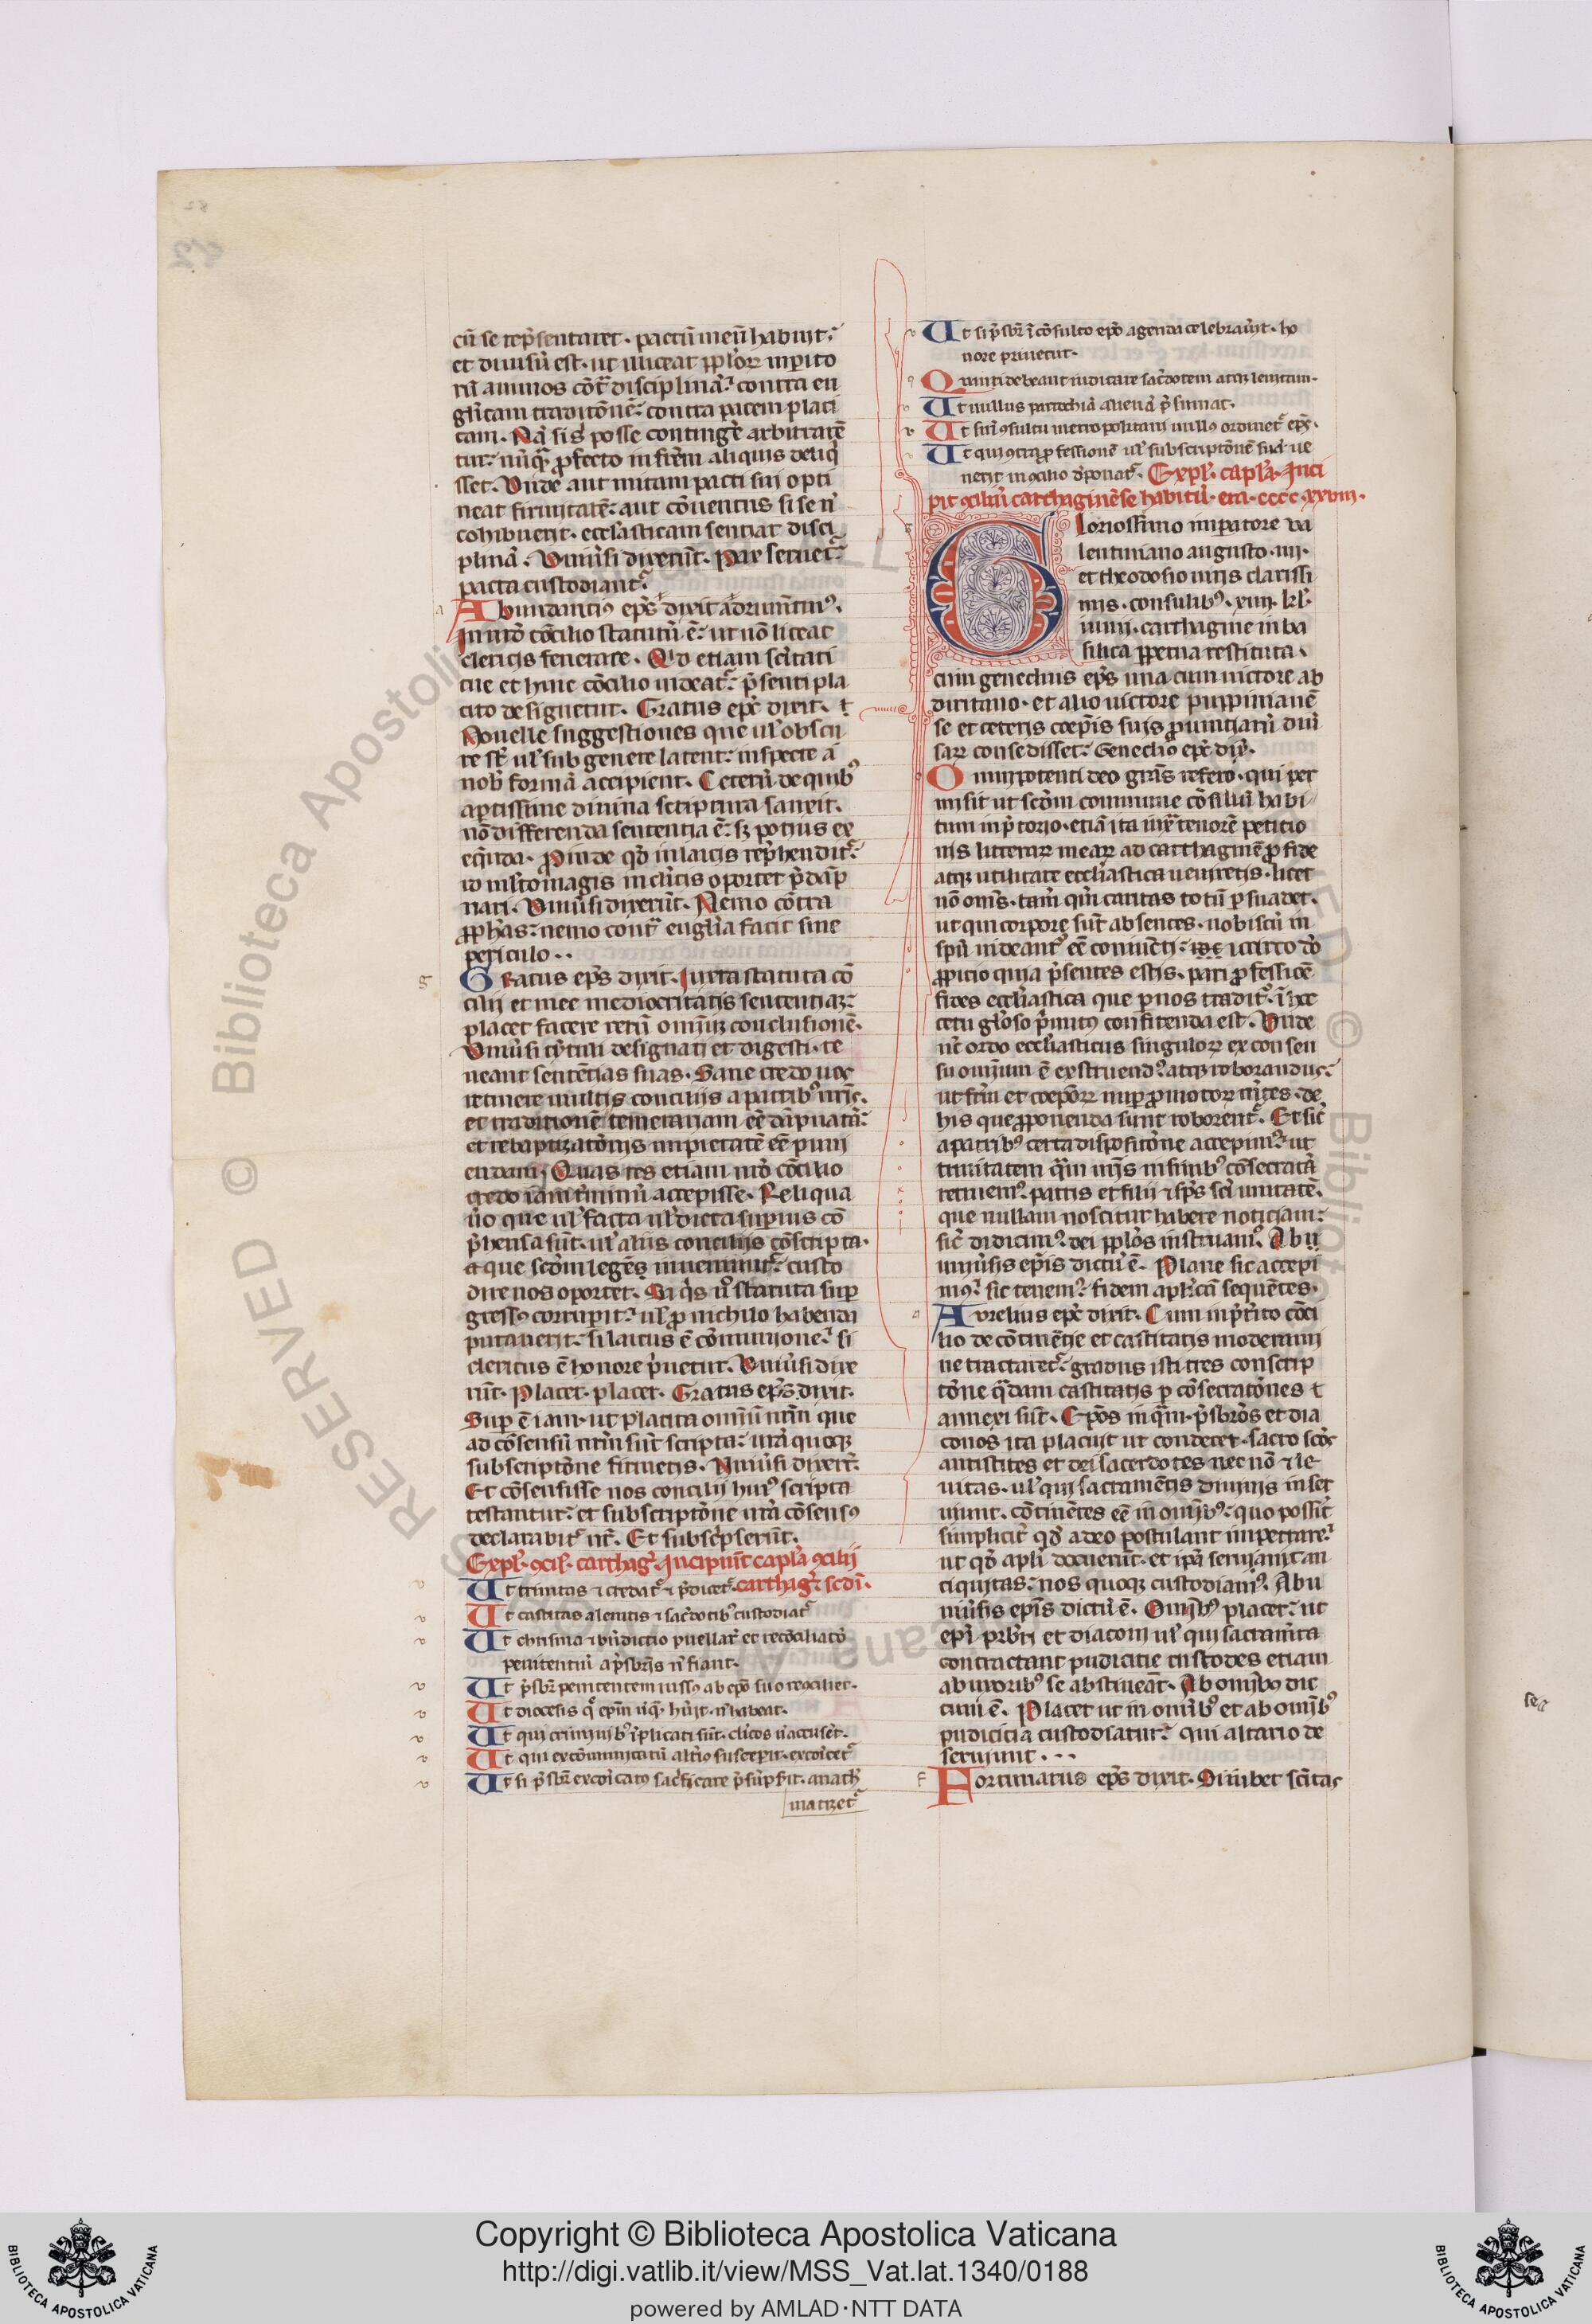 cū se rep̄sentaret · pactū meū habuit ·
et diuisū est · ut illiceat pplōꝝ inp̄ito
rū animos cōt̃ disciplinā · contra eu
glīcam traditōnē · contra pacem placi
tam · Nā si sɨ́s posse contingē arbitrarē
tur · nūqͣ ꝓfecto in frēm aliquis deliq̄
sset · Unde aut uitam pacti sui opti
neat firmitatē · aut cōuentus si se nͦ
cohibuerit · eccl'asticam sentiat disci
plinā · Uniūsi dixerūt · Pax seruet᷑
pacta custodiant᷑
Abundantiꝰ ep̄s dixit adrumētinꝰ ·
In nrō cōcilio statutū ē · ut nō liceat
clericis fenerare · Qd etiam scītati
tue et huic cōcilio uideat᷑ · p̄senti pla
cito designetur · Gratus ep̄c dixit · ⁊
Nouelle suggestiones que ul' obscu
re st̄ ul' sub genere latent · inspecte a
nob̄ formā accipient · Ceterū de quibꝰ
aptissime diuina scriptura sanxit ·
nō differenda sententia ē · sꝫ potius ex
eq̄nda · ꝓinde qd in laicis rep̄hendit᷑
id m̄lto magis in cl'icis oportet p̄dāp
nari · Uniūsi dixerūt · Nemo cōtra
ꝓphās · nemo cont̃ euglīa facit sine
periculo · ·
Gratus ep̄s dixit · Iuxta statuta cō
cilij et mee mediocritatis sententiaꝫ
placet facere rerū omīuꝫ conclusionē ·
Uniūsi t̄ituli designati et digesti · te
neant sentētias suas · Sane credo uos
retinere multis concilijs a patribꝰ nr̄is ·
et traditionē temerariam eē dāpnatā ·
et rebaptizatōnis impietatē eē puni
endam · Quas res etiam nrō cōcilio
credo iam t̄minū accepisse · Reliqua
ūo que ul' facta ul' dicta supius cō
p̄hensa sūt · ul' alijs concilijs cōscripta ·
a que scdm leges inueniunt᷑ · custo
dire nos oportet · Si q̄s ūo statuta sup
gressꝰ corrupit · ul' ꝓ nichilo habenda
putauerit · si laicus ē cōmunione · si
clericus ē honore p̄uetur · Uniūsi dixe
rūt · Placet · placet · Gratus ep̄s dixit ·
Sup ē iam · ut placita omniū nrm̄ que
ad cōsensū nrm̄ sūt scripta · ur̄a quoqꝫ
subscriptōne firmetis · Uniūsi dixer̄t ·
Et cōsensisse nos concilij huiꝰ scripta
testantur · et subscriptōne nr̄a cōsensꝰ
declarabit᷑ nr̄ · Et subscp̄serūt ·
Expl' ꝯcil' carthag᷑ · Incipiūt capl'a ꝯcilij
Ut trinitas ⁊ credat᷑ ⁊ p̄dicet᷑ · carthag᷑ scdī ·
Ut castitas a leuitis ⁊ sac̄dotibꝰ custodiat᷑
Ut chrisma ⁊ bn̄dictio puellaꝝ et recōciliatō
penitentiū a p̄sbris nͦ fiant ·
Ut p̄sbr̄ penitentem iussꝰ ab ep̄o suo recōciliet ·
Ut diocesis q̄ ep̄m nūqͣ · hūit · nͦ habeat ·
Ut qui criminibꝰ īplicati sūt · cl'icos nͦ accusēt ·
Ut qui excōmunicatū altīo susceperit · excōicet᷑
Ut si p̄sbr̄ excōicatꝰ sac̄ficare p̄sūpsit · anath̄
matizet᷑
Ut si p̄sbr̄ ī cōsulto ep̄o agenda celebraūit · ho
nore priuetur ·
Quanti debeant iudicare sac̄dotem atqꝫ leuitam ·
Ut nullus parrochiā alienā p̄sumat ·
Ut sine ꝯsultu metropolitani nullꝰ ordinet᷑ ep̄s ·
Ut qui ꝯtra ꝓfessionē ul' subscriptōnē suā ue
nerit in ꝯcilio dponat᷑ · Expl' · capl'a · Inci
pit ꝯciliū carthaginēse habitū · era · cccc · xxviii ·
Gloriosissimo imperatore va
lentiniano augusto · iiij ·
et theodosio uiris clarissi
mis · consulibꝰ · xiiij · kl' ·
iunij · carthagine in ba
silica ppetua restituta ·
cum genechius ep̄s una cum uictore ab
diritano · et alio uictore puppinianē
se et ceteris coep̄is suis ꝓuinciarū diū
saꝝ consedisset · Genechio ep̄c dix̄ ·
Omnipotenti deo grās refero · qui per
misit ut scdm commune cōsiliū habi
tum in p̄torio · etiā ita iux̄ tenorē peticio
nis litteraꝝ meaꝝ ad carthaginē ꝓ fide
atqꝫ utilitate eccl'iastica ueniretis · licet
nō oms̄ · tam̄ qm̄ caritas totū p̄suadet ·
ut qui corpore sūt absentes · nobiscū in
spū uideant᷑ eē conuicti · idcirco dō
ꝓpicio quia p̄sentes estis · pari ꝓfessiōe
fides eccl'iastica que p nos tradit᷑ · ī hoc
cetu gl'oso p̄mitꝰ confitenda est · Unde
nr̄ ordo eccl'iasticus singuloꝝ ex consen
su omnium ē exstruendꝰ atqꝫ roborandus ·
ut frm̄ et coep̄oꝝ nup ꝓmotoꝝ m̄tes · de
his que ꝓponenda sunt roborent᷑ · Et sic̄
a patribꝰ certa dispositōne accepimꝰ · ut
trinitatem quā in nr̄is sensibꝰ cōsecratā
retinemꝰ · patris et filij ⁊ spūs sc̄i unitatē ·
que nullam noscitur habere noticiam ·
sic̄ didicimꝰ · dei pplōs instruamꝰ · Ab u
niuūsis ep̄is dictū ē · Plane sic accepi
mꝰ · sic tenemꝰ · fidem apl'icā sequētes ·
Aurelius ep̄c dixit · Cum in p̄t̄ito cōci
lio de cōtinētie et castitatis moderami
ne tractaret᷑ · gradus isti tres conscrip
tōne q̄dam castitatis p cōsecratōnes ⁊
annexi sūt · Ep̄os inquā · p̄sbros et dia
conos ita placuit ut condecet · sacro scōs
antistites et dei sacerdotes nec nō ⁊ le
uitas · ul' qui sacramētis diuinis inser
uiunt · cōtinētes eē in omībꝰ · quo possit
simplicit̄ qd a deo postulant impetrare ·
ut qd apl'i docuerūt · et ipā seruauit an
tiquitas · nos quoqꝫ custodiamꝰ · Ab u
niūsis ep̄is dictū ē · Omībꝰ placet · ut
ep̄i prb̄ri et diaconi ul' qui sacram̄ta
contractant pudicitie custodes etiam
ab uxoribꝰ se abstineāt · Ab omībꝰ dic
tum ē · Placet ut in omībꝰ et ab omībꝰ
pudicicia custodiatur · qui altario de
seruiunt · · ·
Fortunatus ep̄s dixit · Si iubet scītas
Copyright © Biblioteca Apostolica Vaticana
http://digi.vatlib.it/view/MSS_Vat.lat.1340/0188
powered by AMLAD·NTT DATA
BIBLIOTECA APOSTOLICA VATICANA
BIBLIOTECA APOSTOLICA VATICANA